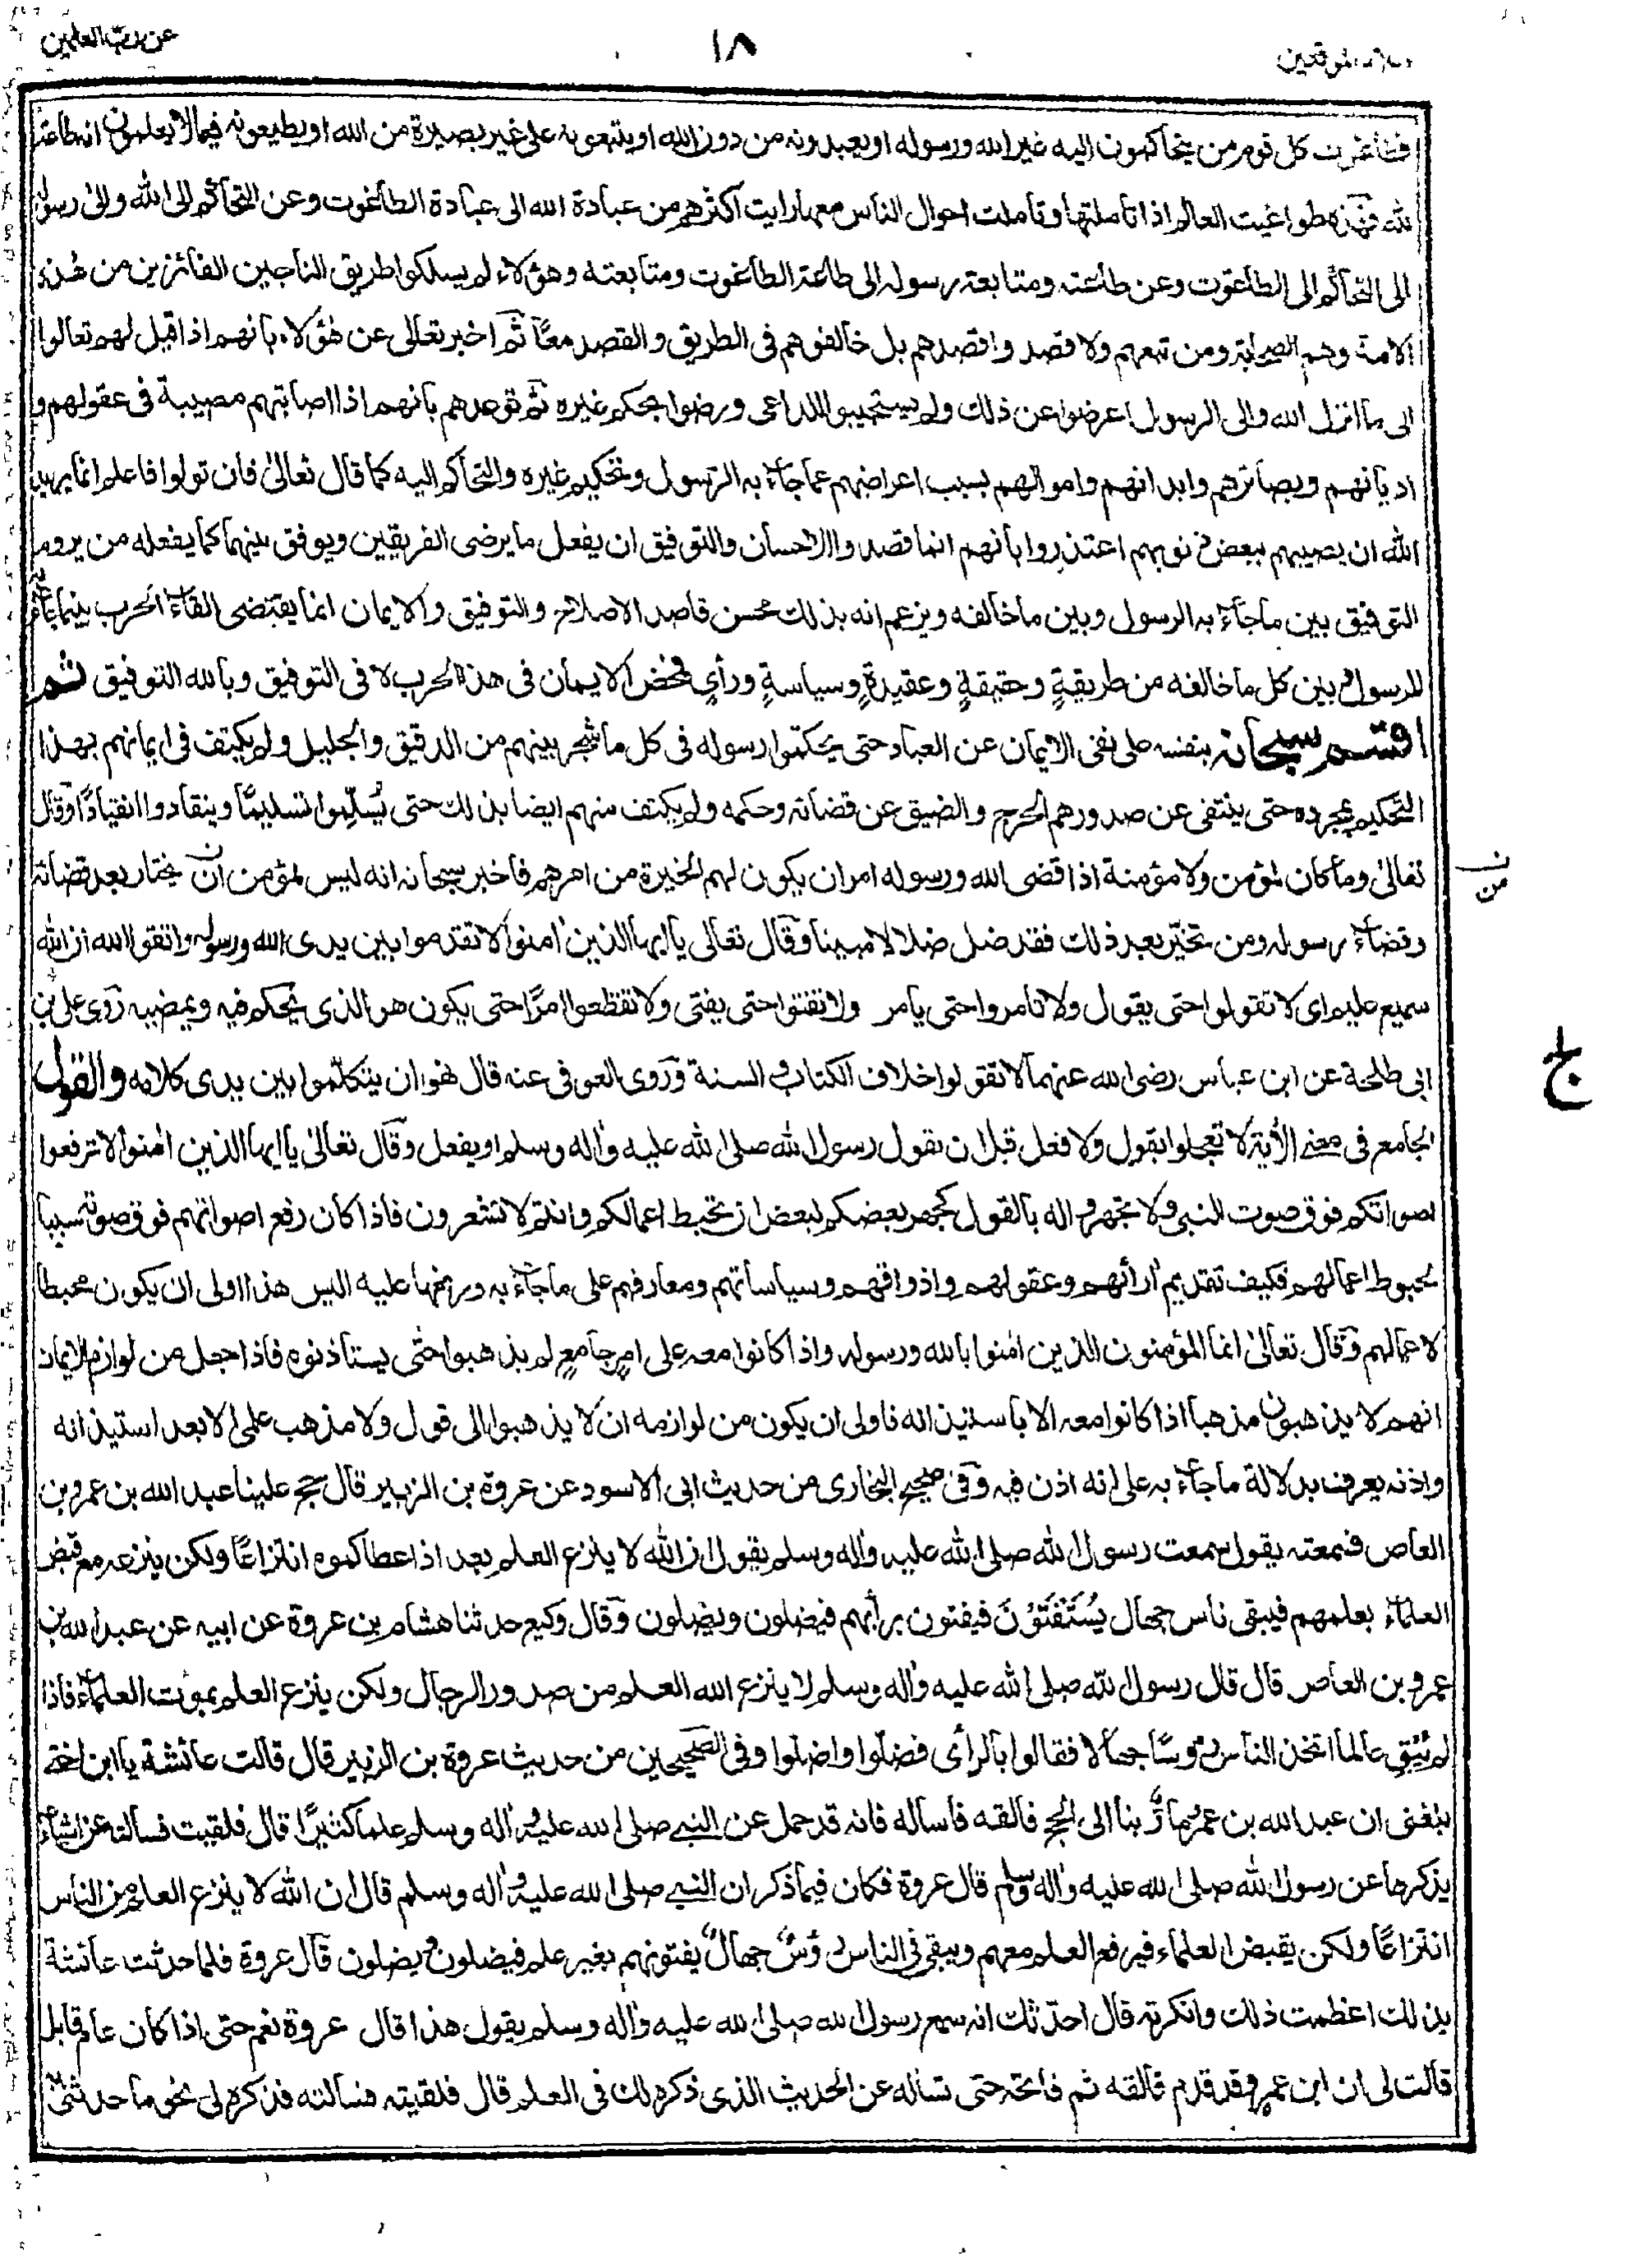 عن رب العلمين
١٨
اعلام الموقعين
فطاغوت كل قوم من يتحاكمون اليه غير الله ورسوله او يعبدونه من دون الله او يتبعونه على غير بصيرة من الله او يطيعونه فيما لا يعلمون انه طاعة
لله فهذه طواغيت العالم اذا تاملتها وتاملت احوال الناس معها رايت اكثرهم من عبادة الله الى عبادة الطاغوت وعن التحاكم الى الله والى رسوله
الى التحاكم الى الطاغوت وعن طاعته ومتابعة رسوله الى طاعة الطاغوت ومتابعته وهؤلاء لم يسلكوا طريق الناجين الفائزين من هذه
الامة وهم الصحابة ومن تبعهم ولا قصد واقصدهم بل خالفوهم فى الطريق والقصد معًا ثم اخبر تعالى عن هؤلاء بانهم اذا قيل لهم تعالوا
الى ما انزل الله والى الرسول اعرضوا عن ذلك ولم يستجيبوا للداعى ورضوا بحكم غيره ثم توعدهم بانهم اذا اصابتهم مصيبة فى عقولهم و
اديانهم وبصائرهم وابدانهم واموالهم بسبب اعراضهم عما جاء به الرسول وتحكيم غيره والتحاكم اليه كما قال تعالى فان تولوا فاعلم انما يريد
الله ان يصيبهم ببعض ذنوبهم اعتذروا بانهم انما قصدوا الاحسان والتوفيق ان يفعل ما يرضى الفريقين ويوفق بينهما كما يفعله من يروم
التوفيق بين ما جاء به الرسول وبين ما خالفه ويزعم انه بذلك محسن قاصد الاصلاح والتوفيق والايمان انما يقتضى القاء الحرب بين ما جاء به
الرسول وبين كل ما خالفه من طريقةٍ وحقيقةٍ وعقيدةٍ وسياسةٍ ورأيٍ فمحض الايمان فى هذا الحرب لا فى التوفيق وبالله التوفيق ثم
اقسم سبحانه بنفسه على نفى الايمان عن العباد حتى يحكموا رسوله فى كل ما شجر بينهم من الدقيق والجليل ولم يكتف فى ايمانهم بهذا
التحكيم بمجرده حتى ينتفى عن صدورهم الحرج والضيق عن قضائه وحكمه ولم يكتف منهم ايضا بذلك حتى يُسلّموا تسليمًا وينقادوا انقيادًا وقال
تعالى وما كان لمؤمن ولا مؤمنة اذا قضى الله ورسوله امرا ان يكون لهم الخيرة من امرهم فاخبر سبحانه انه ليس لمؤمن ان يختار بعد قضائه
ن
من
وقضاء رسوله ومن تخيّر بعد ذلك فقد ضل ضلالا مبينا وقال تعالى يا ايها الذين اٰمنوا لا تقدموا بين يدى الله ورسوله واتقوا الله ان الله
سميع عليم اى لا تقولوا حتى يقول ولا تامروا حتى يامر ولا تفتوا حتى يفتى ولا تقطعوا امرًا حتى يكون هو الذى يحكم فيه ويمضيه روى على بن
ابى طلحة عن ابن عباس رضى الله عنهما لا تقولوا خلاف الكتاب والسنة وروى العوفى عنه قال نهوا ان يتكلموا بين يدى كلامه والقول
ج
الجامع فى معنى الآية لا تعجلوا بقول ولا فعل قبل ان يقول رسول الله صلى الله عليه واٰله وسلم او يفعل وقال تعالى يا ايها الذين اٰمنوا لا ترفعوا
اصواتكم فوق صوت النبى ولا تجهروا له بالقول كجهر بعضكم لبعض ان تحبط اعمالكم وانتم لا تشعرون فاذا كان رفع اصواتهم فوق صوته سببا
لحبوط اعمالهم فكيف تقديم اٰرائهم وعقولهم واذواقهم وسياساتهم ومعارفهم على ما جاء به ورفعها عليه اليس هذا اولى ان يكون محبطا
لاعمالهم وقال تعالى انما المؤمنون الذين اٰمنوا بالله ورسوله واذا كانوا معه على امرٍ جامعٍ لم يذهبوا حتى يستاذنوه فاذا جعل من لوازم الايمان
انهم لا يذهبون مذهبا اذا كانوا معه الا باستيذانه فاولى ان يكون من لوازمه ان لا يذهبوا الى قول ولا مذهب علمى الا بعد استيذانه
واذنه يعرف بدلالة ما جاء به على انه اذن فيه وفى صحيح البخارى من حديث ابى الاسود عن عروة بن الزبير قال حج علينا عبد الله بن عمرو بن
العاص فسمعته يقول سمعت رسول الله صلى الله عليه واٰله وسلم يقول ان الله لا ينزع العلم بعد اذ اعطاكموه انتزاعًا ولكن ينزعه مع قبض
العلماء بعلمهم فيبقى ناس جهال يُسْتَفْتَوْنَ فيفتون برأيهم فيضلون ويضلون وقال وكيع حدثنا هشام بن عروة عن ابيه عن عبد الله بن
عمرو بن العاص قال قال رسول الله صلى الله عليه واٰله وسلم لا ينزع الله العلم من صدور الرجال ولكن ينزع العلم بموت العلماء فاذا
لم يُبْقِ عالما اتخذ الناس رؤسًا جهالا فقالوا بالرأى فضلّوا واضلوا وفى الصحيحين من حديث عروة بن الزبير قال قالت عائشة يا ابن اختى
بلغنى ان عبد الله بن عمرو مارٌّ بنا الى الحج فالقه فاساله فانه قد حمل عن النبى صلى الله عليه واٰله وسلم علما كثيرًا قال فلقيت فسالته عن اشياء
يذكرها عن رسول الله صلى الله عليه واٰله وسلم قال عروة فكان فيما ذكر ان النبى صلى الله عليه واٰله وسلم قال ان الله لا ينزع العلم من الناس
انتزاعًا ولكن يقبض العلماء فيرفع العلم معهم ويبقى فى الناس رؤسٌ جهالٌ يفتونهم بغير علم فيضلون ويضلون قال عروة فلما حدثت عائشة
بذلك اعظمت ذلك وانكرته قال احدّثك انه سمع رسول الله صلى الله عليه واٰله وسلم يقول هذا قال عروة نعم حتى اذا كان عام قابل
قالت لى ان ابن عمرٍو قد قدم فالقه ثم فاتحه حتى تساله عن الحديث الذى ذكره لك فى العلم قال فلقيته فسالته فذكره لى نحو ما حدثنى